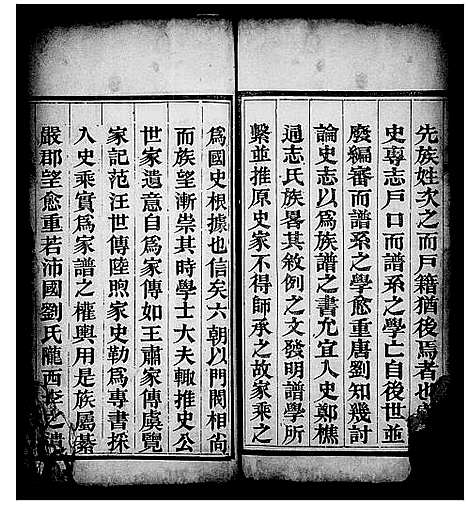 先族姓次之而戶籍猶後焉者也
史專志戶口而譜系之學亡自後世並
廢編審而譜系之學愈重唐劉知幾討
論史志以爲族譜之書允宜入史鄭樵
通志氏族畧其敘例之文發明譜學所
繫並推原史家不得師承之故家乘之
爲國史根據也信矣六朝以門閥相尙
而族望漸崇其時學士大夫輙推史公
世家遺意自爲家傳如王肅家傳虞覽
家記范汪世傳陸煦家史勒爲專書採
入史乘實爲家譜之權輿用是族屬綦
嚴郡望愈重若沛國劉氏隴西李之